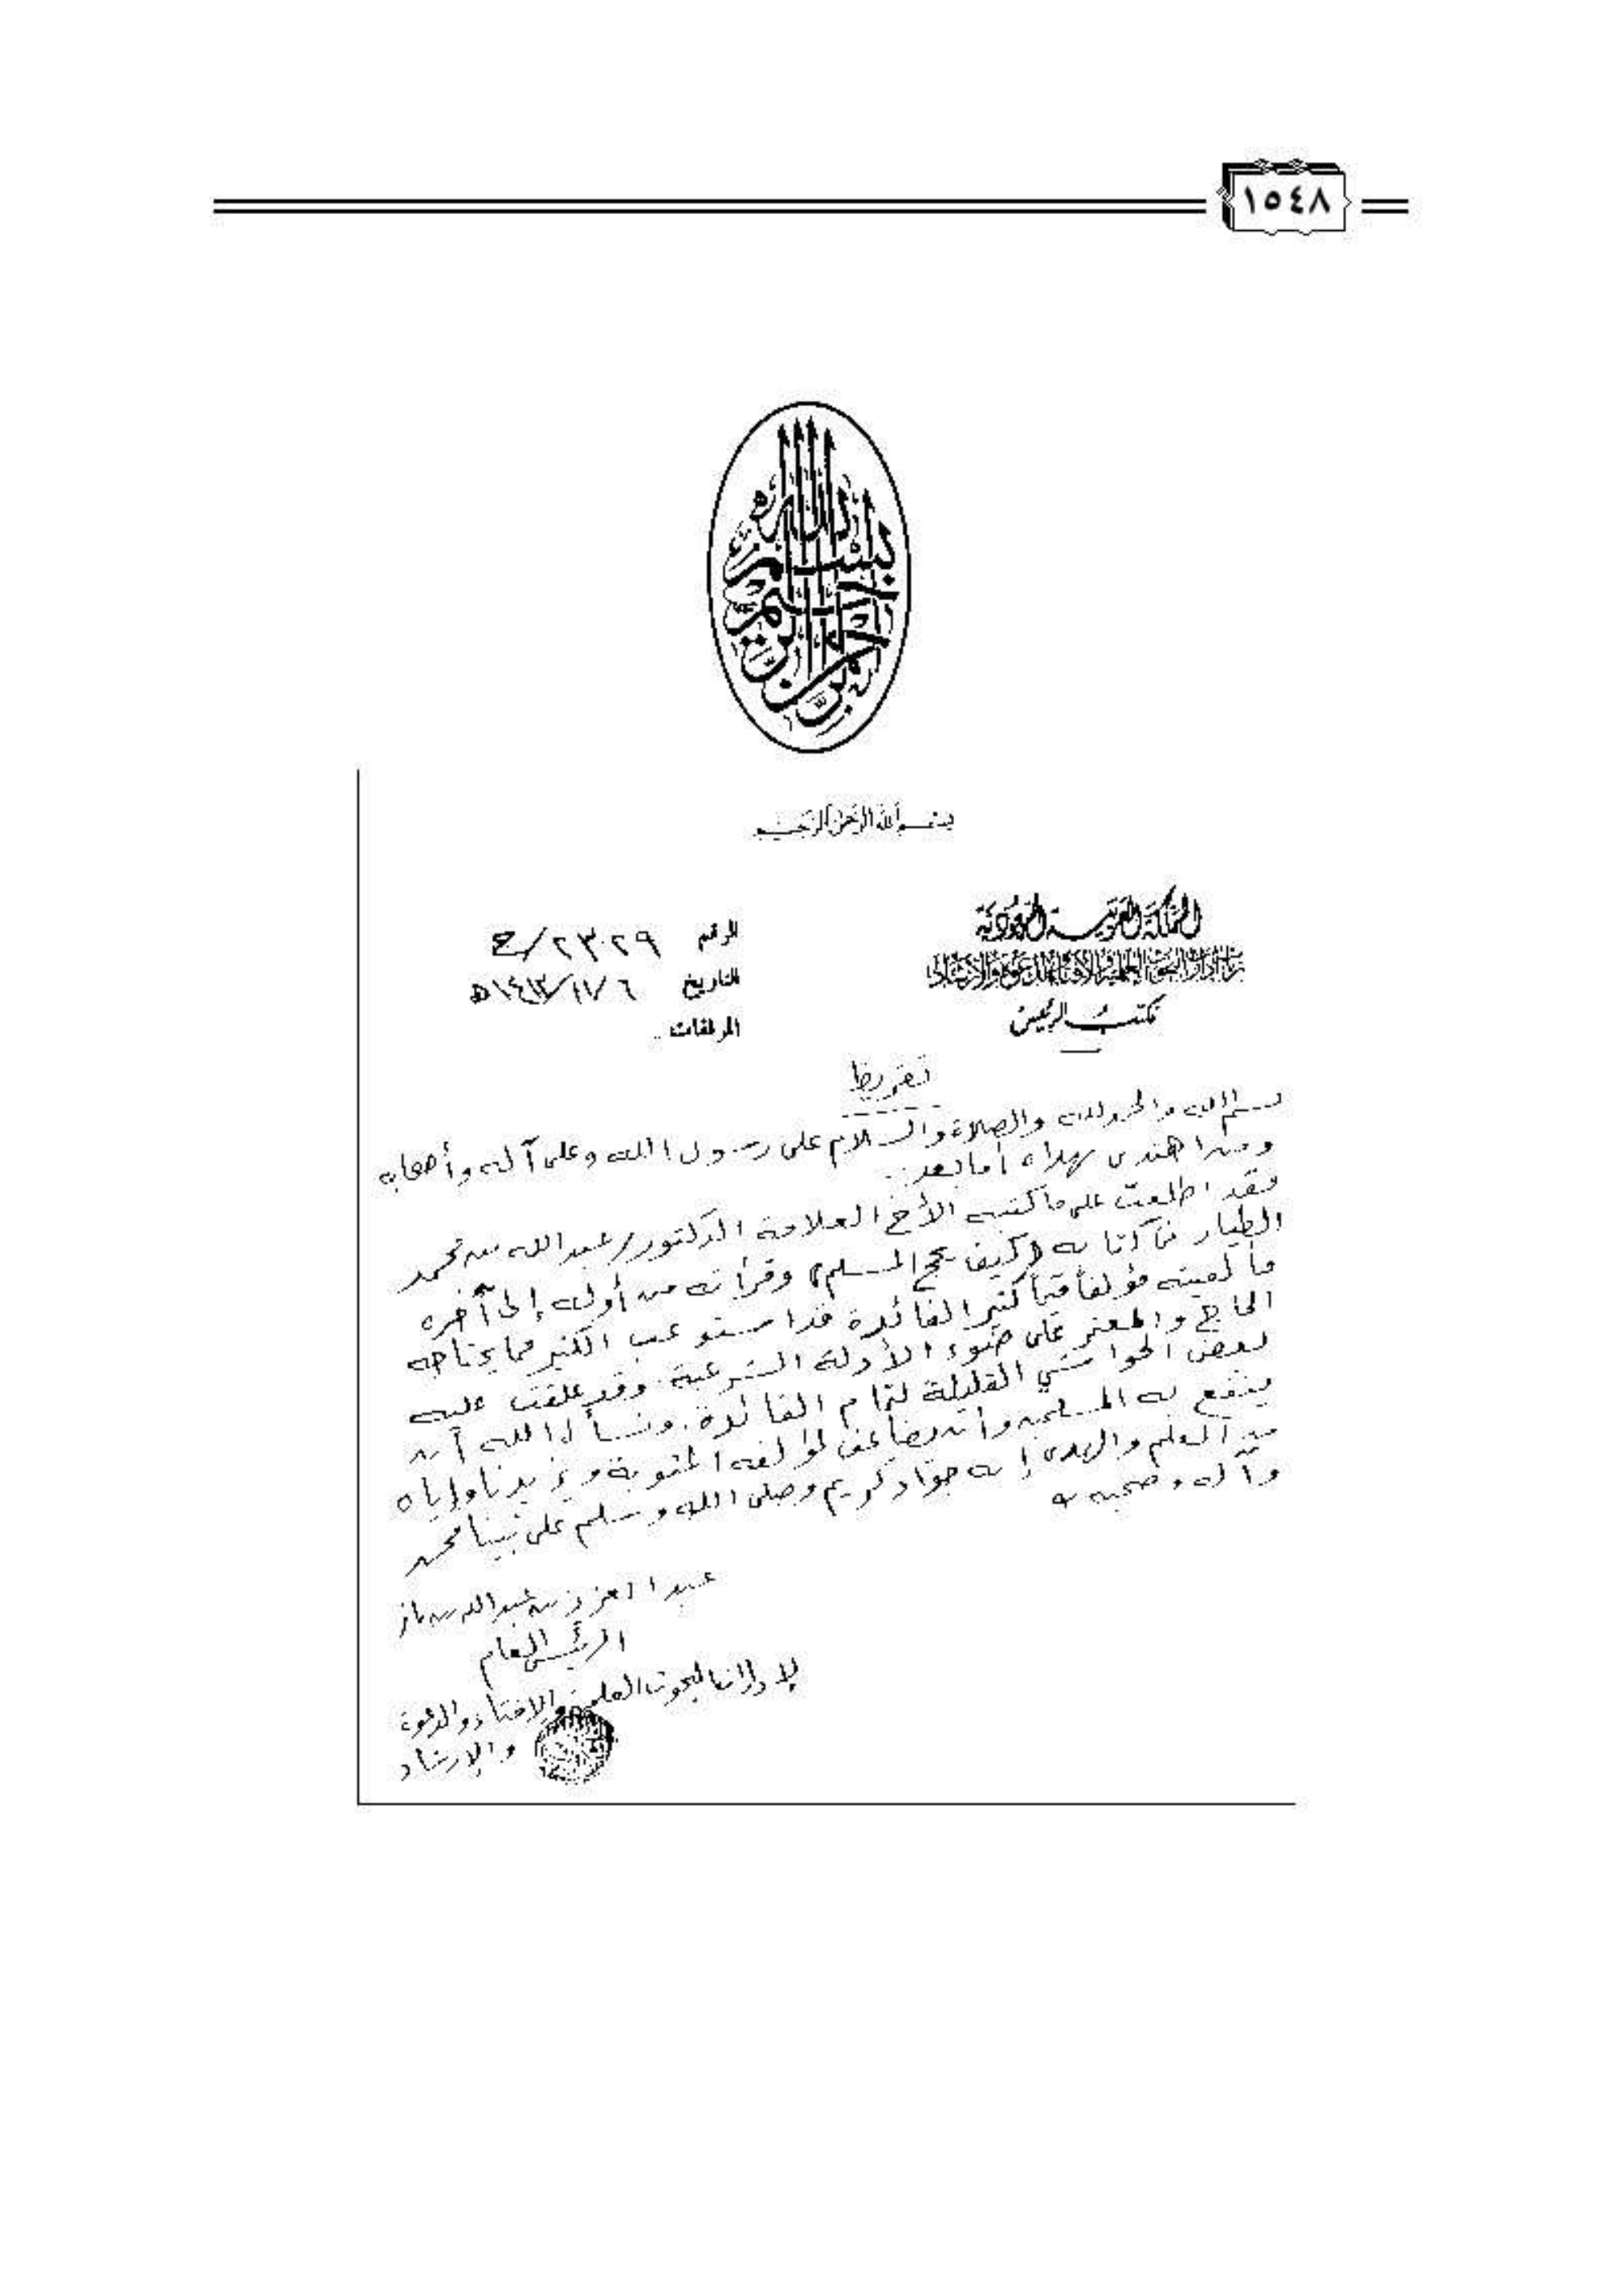 ١٥٤٨
بسم الله الرحمن الرحيم
بسم الله الرحمن الرحيم
المملكة العربية السعودية
رئاسة إدارات البحوث العلمية والإفتاء والدعوة والإرشاد
مكتب الرئيس
الرقم ٢٣٠٢٩/ خ
التاريخ ٦ /١١/ ١٤١٣هـ
المرفقات
تقريظ
بسم الله والحمد لله والصلاة والسلام على رسول الله وعلى آله وأصحابه
ومن اهتدى بهداه أما بعد..
فقد اطلعت على ما كتبه الأخ العلامة الدكتور/ عبد الله بن محمد
الطيار في كتابه (كيف يحج المسلم) وقرأته من أوله إلى آخره
فألفيته مؤلفاً قيماً كثير الفائدة قد استوعب الكثير مما يحتاجه
الحاج والمعتمر على ضوء الأدلة الشرعية. وقد علقت عليه
بعض الحواشي القليلة لتمام الفائدة. ونسأل الله أن
ينفع به المسلمين وأن يضاعف لمؤلفه المثوبة ويزيدنا وإياه
من العلم والهدى إنه جواد كريم وصلى الله وسلم على نبينا محمد
وآله وصحبه
عبد العزيز بن عبد الله بن باز
الرئيس العام
لإدارات البحوث العلمية والإفتاء والدعوة
والإرشاد